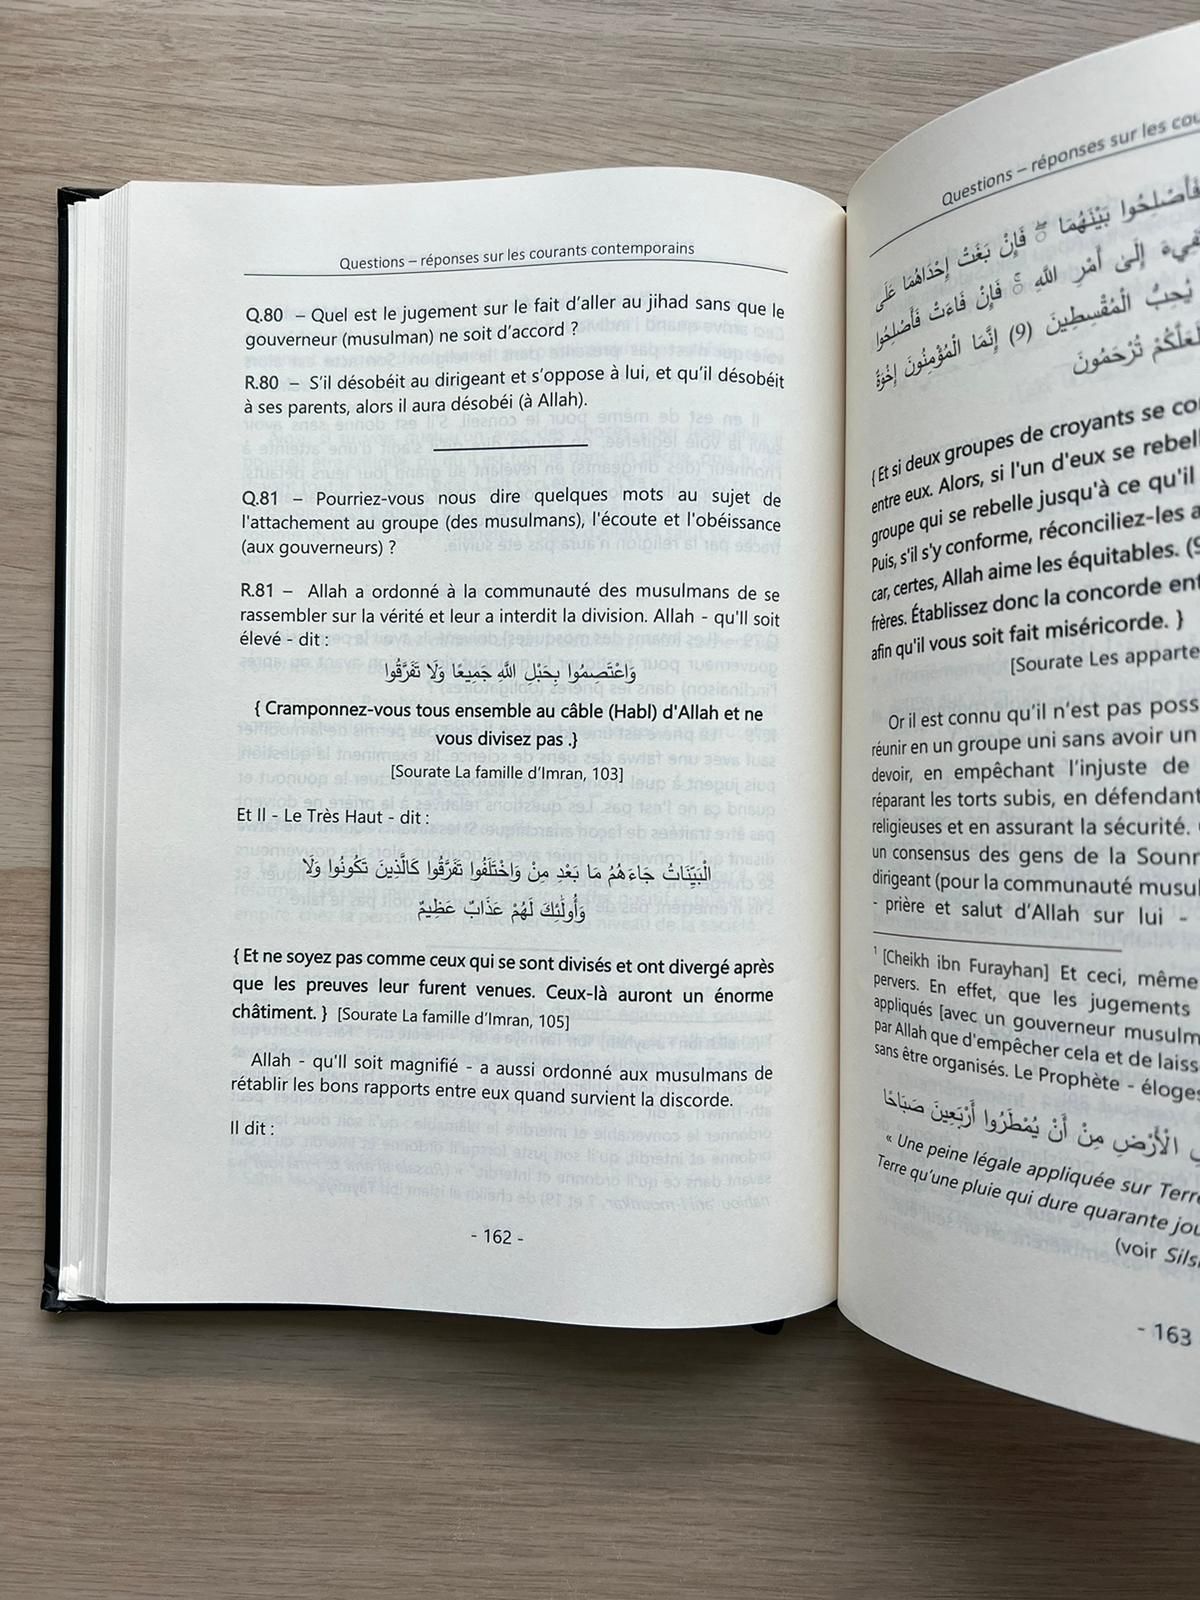 Questions – réponses sur les courants contemporains
Q.80 – Quel est le jugement sur le fait d'aller au jihad sans que le
gouverneur (musulman) ne soit d'accord ?
R.80 – S'il désobéit au dirigeant et s'oppose à lui, et qu'il désobéit
à ses parents, alors il aura désobéi (à Allah).
Q.81 – Pourriez-vous nous dire quelques mots au sujet de
l'attachement au groupe (des musulmans), l'écoute et l'obéissance
(aux gouverneurs) ?
R.81 – Allah a ordonné à la communauté des musulmans de se
rassembler sur la vérité et leur a interdit la division. Allah - qu'Il soit
élevé - dit :
وَاعْتَصِمُوا بِحَبْلِ اللَّهِ جَمِيعًا وَلَا تَفَرَّقُوا
{ Cramponnez-vous tous ensemble au câble (Habl) d'Allah et ne
vous divisez pas .}
[Sourate La famille d'Imran, 103]
Et Il - Le Très Haut - dit :
الْبَيِّنَاتُ جَاءَهُمُ مَا بَعْدِ مِنْ وَاخْتَلَفُوا تَفَرَّقُوا كَالَّذِينَ تَكُونُوا وَلَا
وَأُولَٰئِكَ لَهُمْ عَذَابٌ عَظِيمٌ
{ Et ne soyez pas comme ceux qui se sont divisés et ont divergé après
que les preuves leur furent venues. Ceux-là auront un énorme
châtiment. } [Sourate La famille d'Imran, 105]
Allah - qu'Il soit magnifié - a aussi ordonné aux musulmans de
rétablir les bons rapports entre eux quand survient la discorde.
Il dit :
- 162 -
Questions – réponses sur les
فَأَصْلِحُوا بَيْنَهُمَا ۖ فَإِنْ بَغَتْ إِحْدَاهُمَا عَلَى
إِلَى أَمْرِ اللَّهِ ۚ فَإِنْ فَاءَتْ فَأَصْلِحُوا
يُحِبُّ الْمُقْسِطِينَ (9) إِنَّمَا الْمُؤْمِنُونَ إِخْوَةٌ
لَعَلَّكُمْ تُرْحَمُونَ
{ Et si deux groupes de croyants se
entre eux. Alors, si l'un d'eux se
groupe qui se rebelle jusqu'à ce qu'il
Puis, s'il s'y conforme, réconciliez-les
car, certes, Allah aime les équitables.
frères. Établissez donc la concorde
afin qu'il vous soit fait miséricorde. }
[Sourate Les
Or il est connu qu'il n'est pas
réunir en un groupe uni sans avoir un
devoir, en empêchant l'injuste de
réparant les torts subis, en défendant
religieuses et en assurant la sécurité.
un consensus des gens de la
dirigeant (pour la communauté
- prière et salut d'Allah sur lui -
1 [Cheikh ibn Furayhan] Et ceci, même
pervers. En effet, que les jugements
appliqués [avec un gouverneur
par Allah que d'empêcher cela et de
sans être organisés. Le Prophète -
الْأَرْضِ مِنْ أَنْ يُمْطَرُوا أَرْبَعِينَ صَبَاحًا
« Une peine légale appliquée sur
Terre qu'une pluie qui dure quarante
(voir
- 163